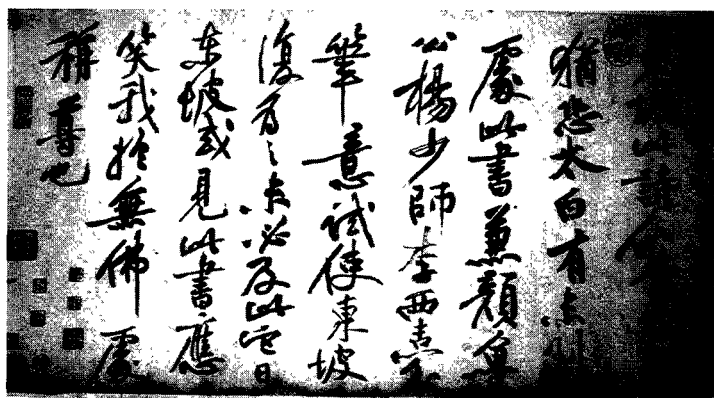 坡此詩似
猶恐太白有未到
處此書兼顏魯
公楊少師李西臺
筆意試使東坡
復為之未必及此它日
東坡或見此書應
笑我於無佛處
稱尊也